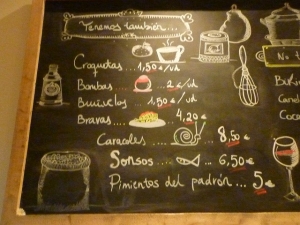 Tenemos también...
Croquetas .... 1,50 €/ud
Bombas ... 2 €/ud
Buñuelos ... 1,50 €/ud
Bravas .... 4,20 €
Caracoles .... 8,50 €
Sonsos .... 6,50 €
Pimientos del padrón ... 5 €